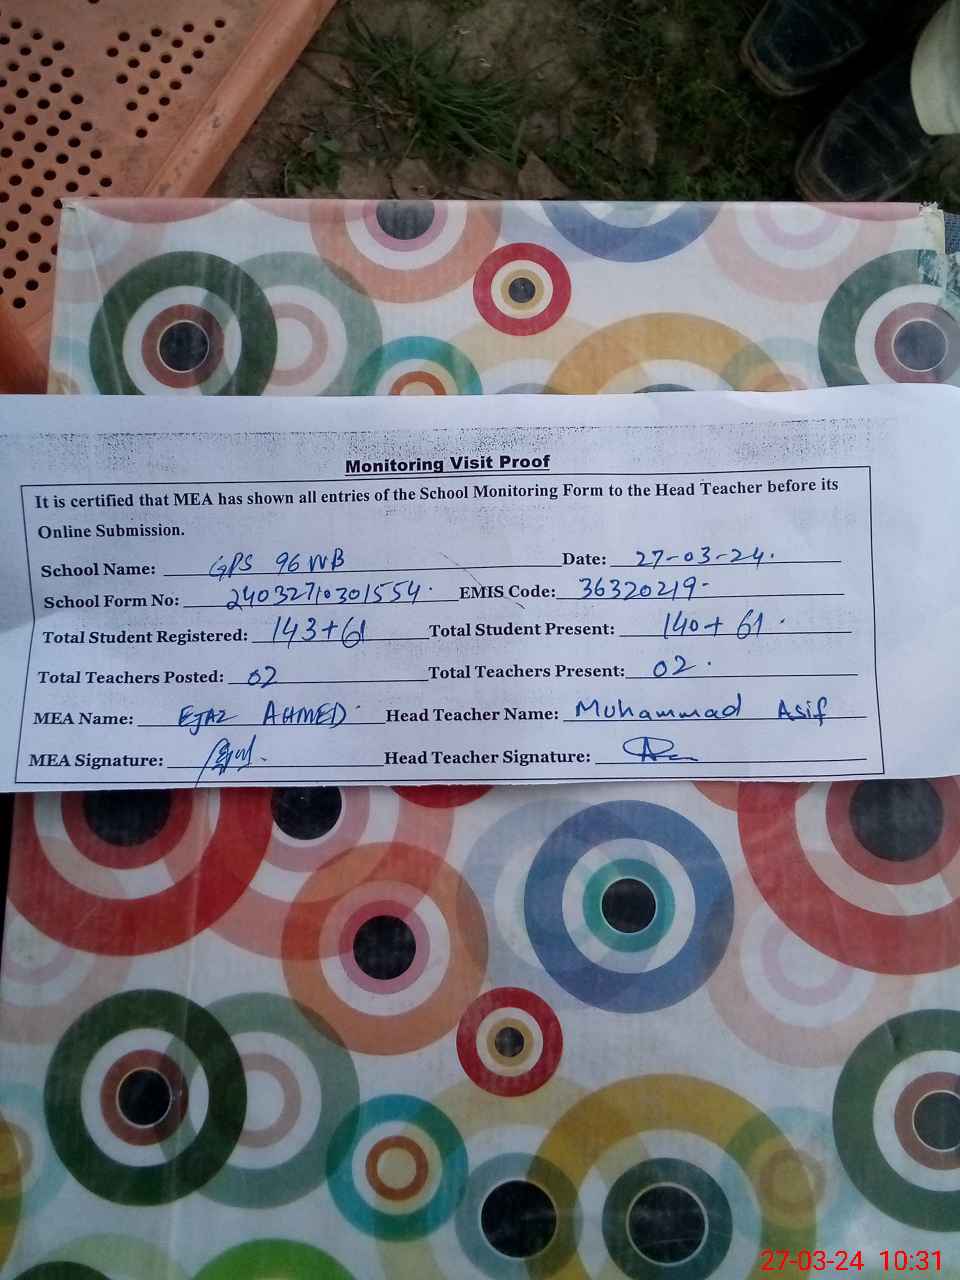 Monitoring Visit Proof
It is certified that MEA has shown all entries of the School Monitoring Form to the Head Teacher before its
Online Submission.
School Name: GPS 96 WB Date: 27-03-24.
School Form No: 24032710301554. EMIS Code: 36320219-
Total Student Registered: 143+61 Total Student Present: 140+ 61.
Total Teachers Posted: 02 Total Teachers Present: 02.
MEA Name: EJAZ AHMED Head Teacher Name: Muhammad Asif
MEA Signature: Head Teacher Signature:
27-03-24 10:31